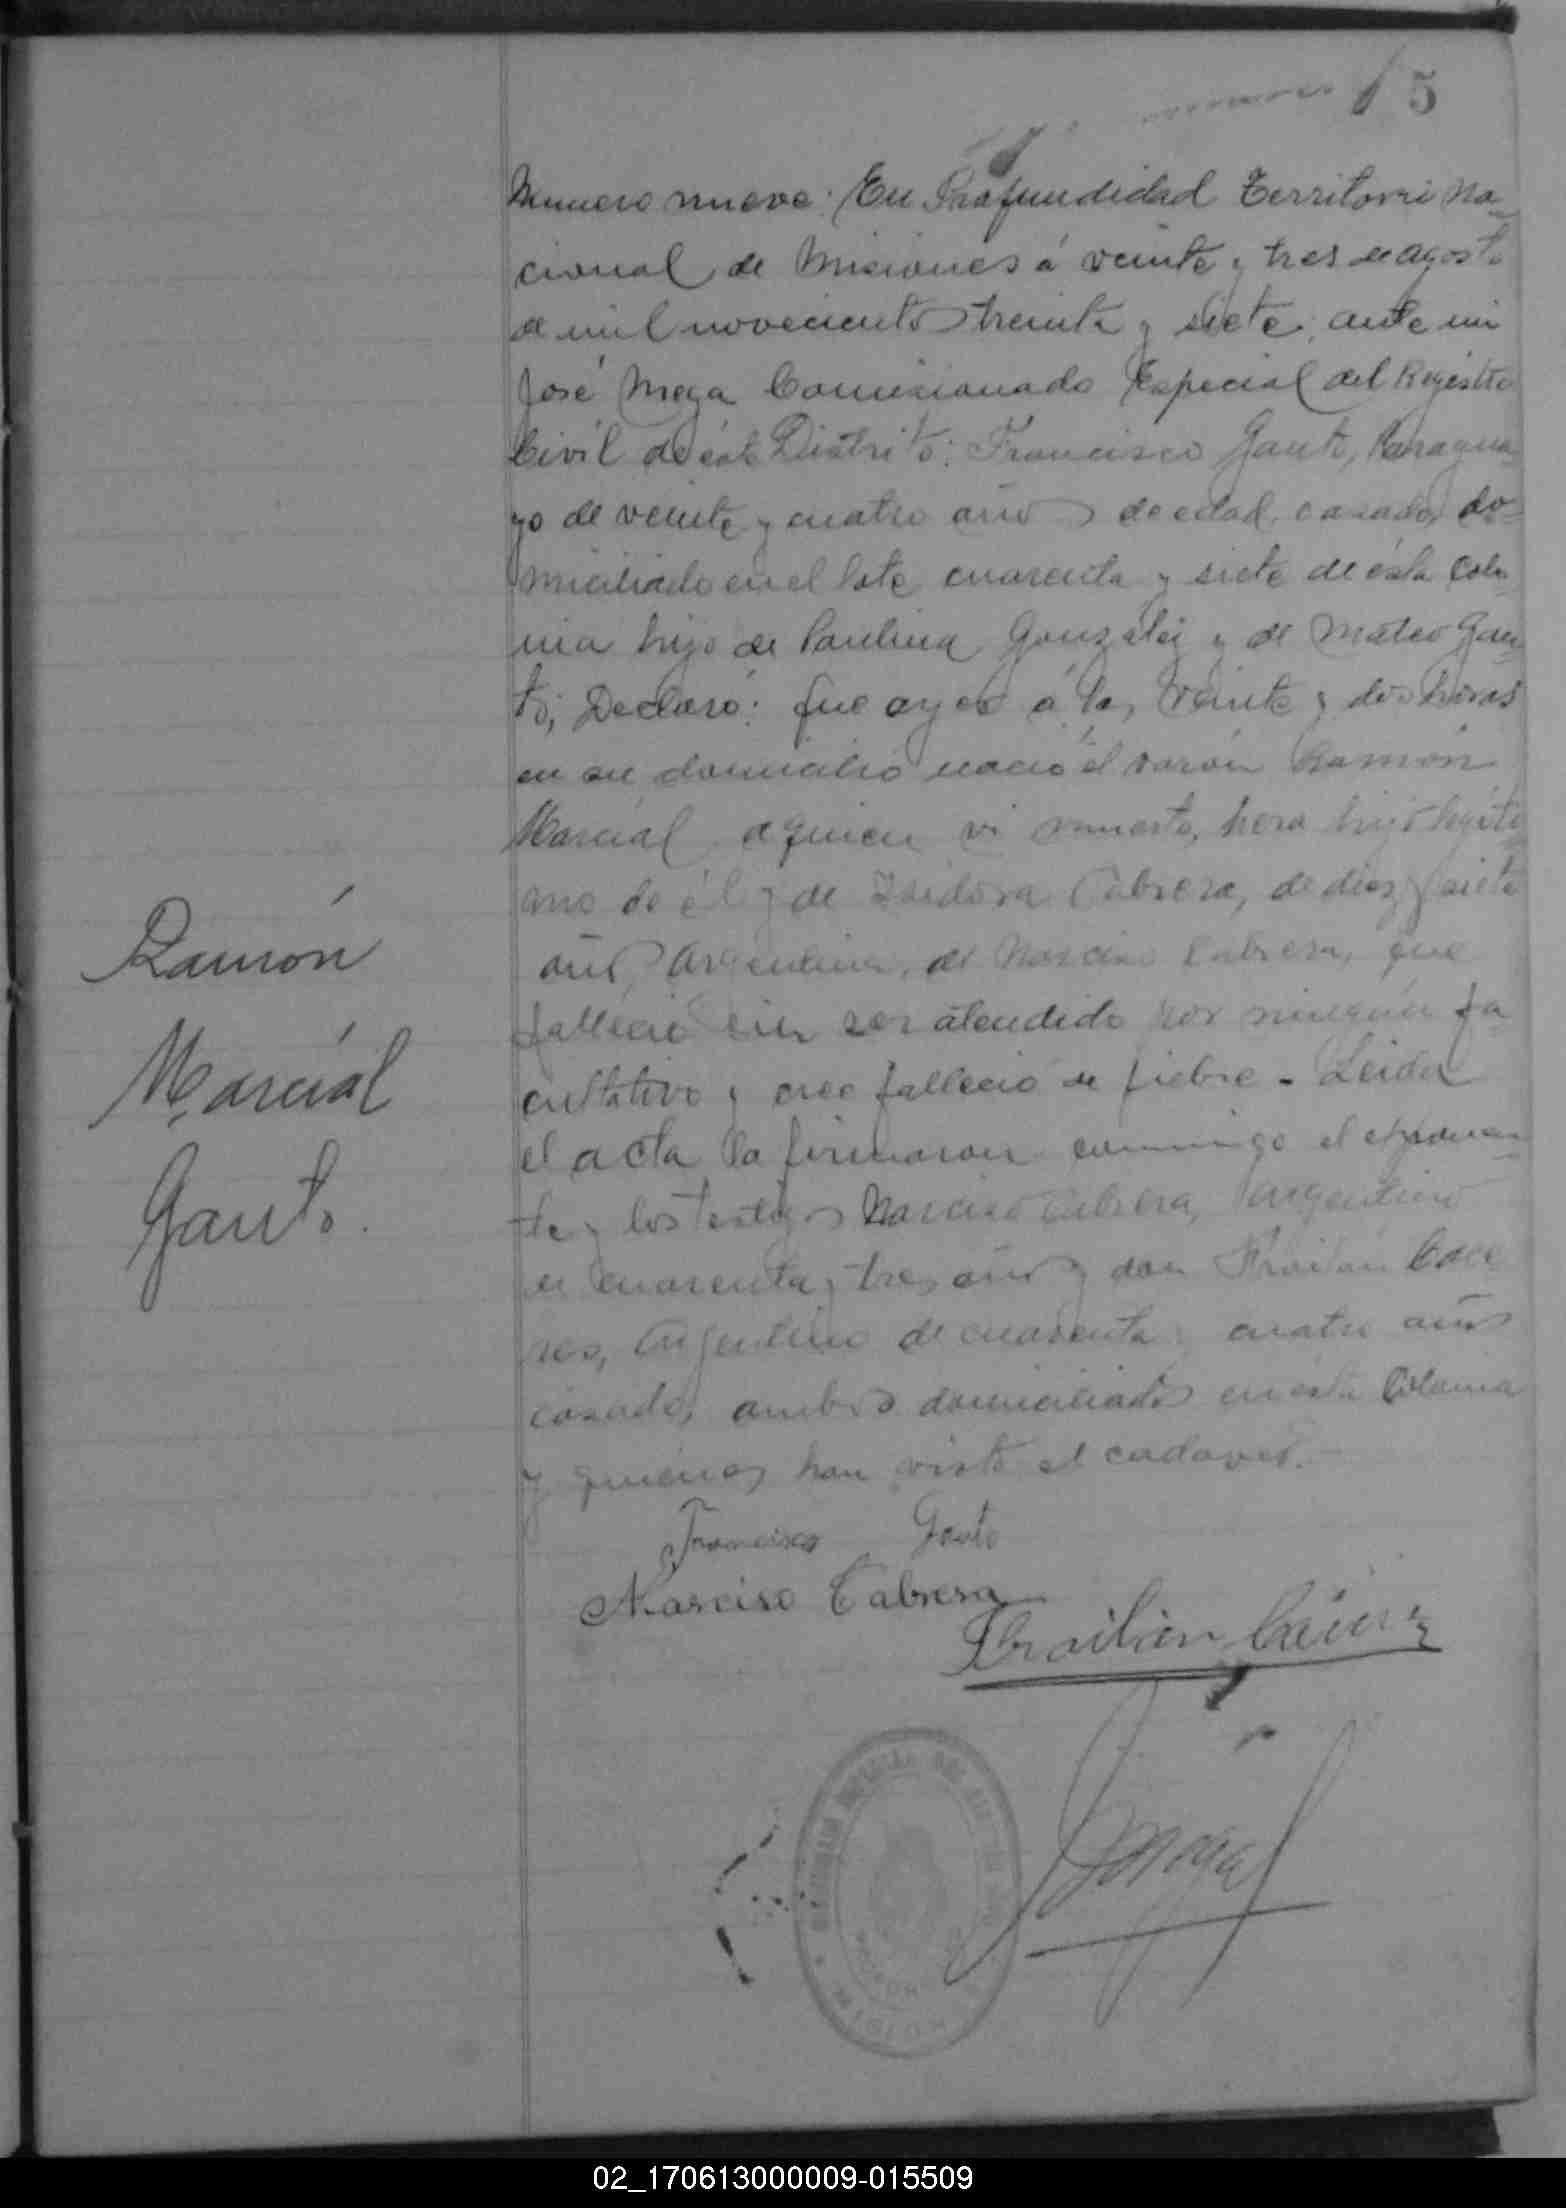 5
Numero nueve: En Profundidad Territorri Na-
cional de Misiones á veinte y tres de agosto
de mil novecientos treinta y siete, ante mi
José Meza Comisionado Especial del Registro
Civil de éste Distrito: Francisco Gauto, Paragua-
yo de veinte y cuatro años de edad, casado, do-
miciliado en el lote cuarenta y siete de ésta Colo-
nia hijo de Paulina González y de Mateo Gau-
to; Declaró: que ayer á las veinte y dos horas
en su domicilio nació el varón Ramón
Marcial a quien vi muerto, hera hijo legiti-
mo de él y de Isidora Cabrera, de diez y siete
años, Argentina, de Narciso Cabrera, que
fallecio sin ser atendido por ningún fa-
cultativo y cree falleció de fiebre - Leida
el acta la firmaron conmigo el exponen-
te y los testigos Narciso Cabrera, Argentino
de cuarenta y tres años y don Froilan Cace
res, Argentino de cuarenta y cuatro años
casado, ambos domiciliados en ésta Colonia
y quienes han visto el cadaver.-
Ramón
Marcial
Gauto.
Francisco Gauto
Narciso Cabrera
Froilán
Meza
02_170613000009-015509